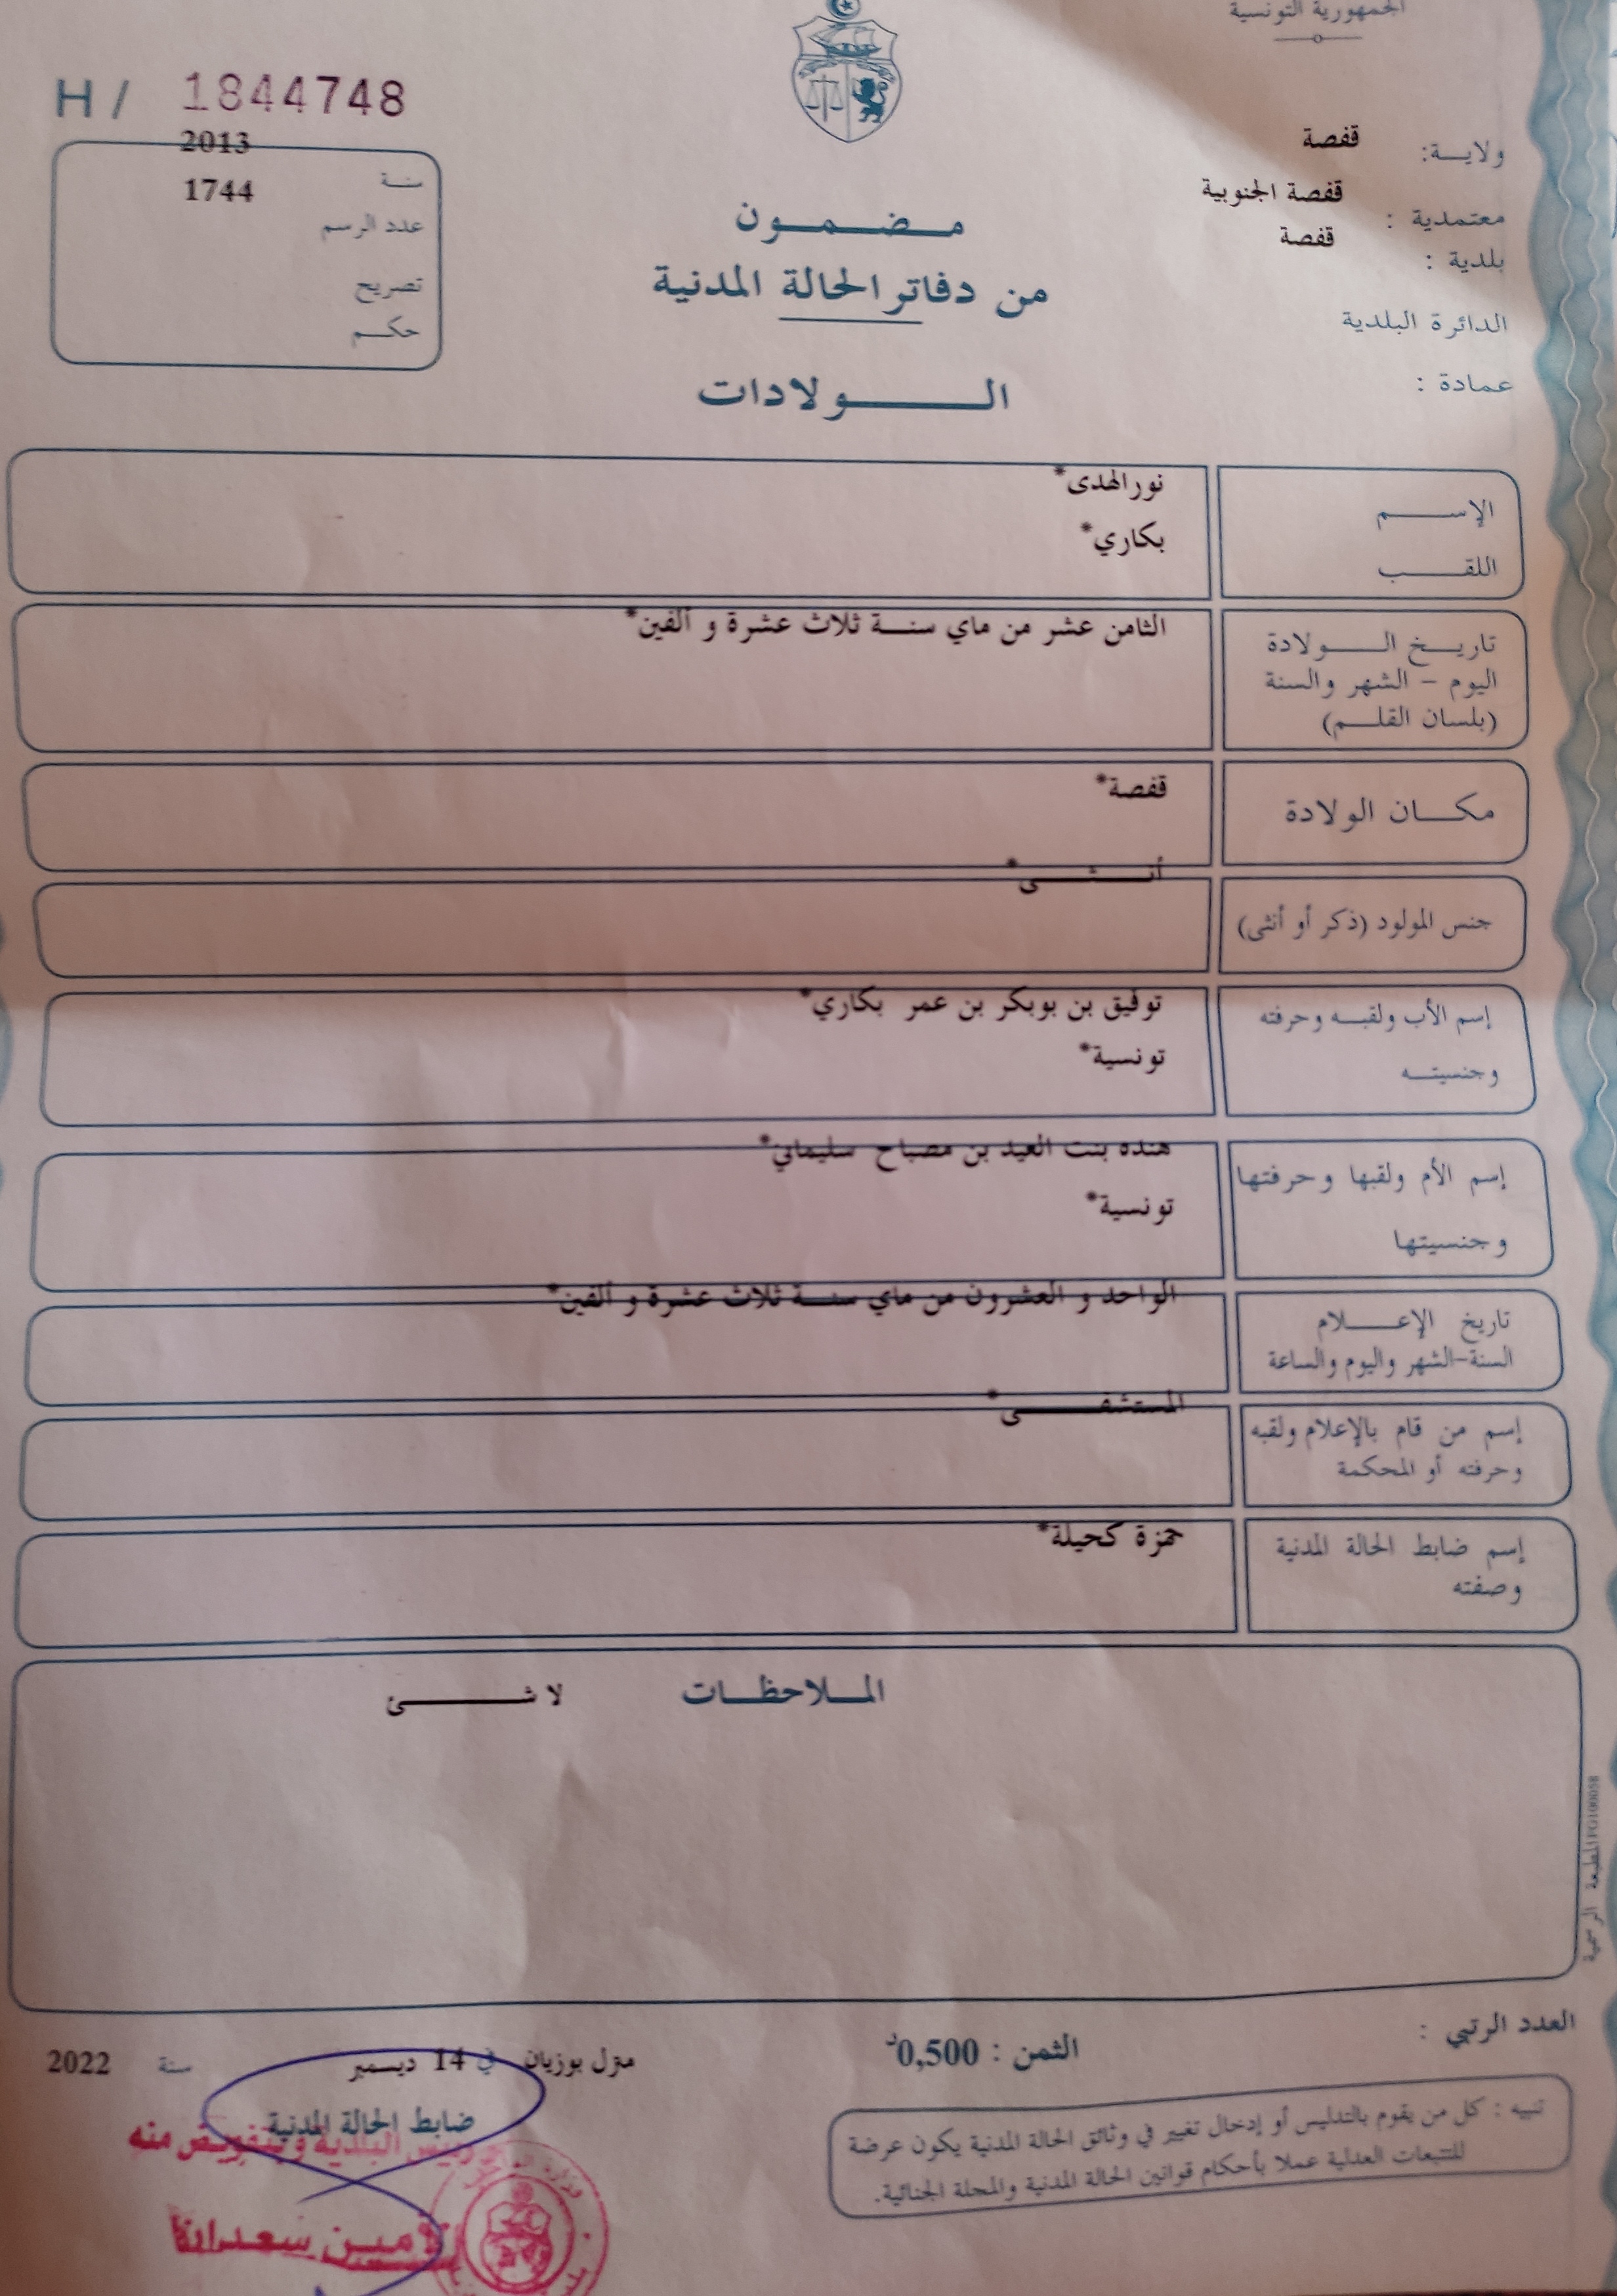 الجمهورية التونسية
H / 1844748
ولايــة: قفصة
معتمدية : قفصة الجنوبية
بلدية : قفصة
الدائرة البلدية
عمادة :
2013
سنــة
1744
عدد الرسم
تصريح
حكــم
مــضــمــون
من دفاتر الحالة المدنية
الــولادات
الإســم نورالهدى*
اللقــب بكاري*
تاريــخ الــولادة الثامن عشر من ماي سنــة ثلاث عشرة و ألفين*
اليوم - الشهر والسنة
(بلسان القلــم)
مكــان الولادة قفصة*
جنس المولود (ذكر أو أنثى) أنــثــى*
إسم الأب ولقبــه وحرفته توفيق بن بوبكر بن عمر بكاري*
وجنسيتــه تونسية*
إسم الأم ولقبها وحرفتها هنده بنت العيد بن مصباح سليماني*
وجنسيتها تونسية*
تاريخ الإعــلام الواحد و العشرون من ماي سنــة ثلاث عشرة و ألفين*
السنة-الشهر واليوم والساعة
إسم من قام بالإعلام ولقبه المستشفــى*
وحرفته أو المحكمة
إسم ضابط الحالة المدنية حمزة كحيلة*
وصفته
المــلاحظــات لا شــئ
المطبعة الرسمية
العدد الرتبي :
الثمن : 0,500د
منزل بوزيان في 14 ديسمبر سنة 2022
ضابط الحالة المدنية
رئيس البلدية وبتفويض منه
تنبيه : كل من يقوم بالتدليس أو إدخال تغيير في وثائق الحالة المدنية يكون عرضة
للتتبعات العدلية عملا بأحكام قوانين الحالة المدنية والمجلة الجنائية.